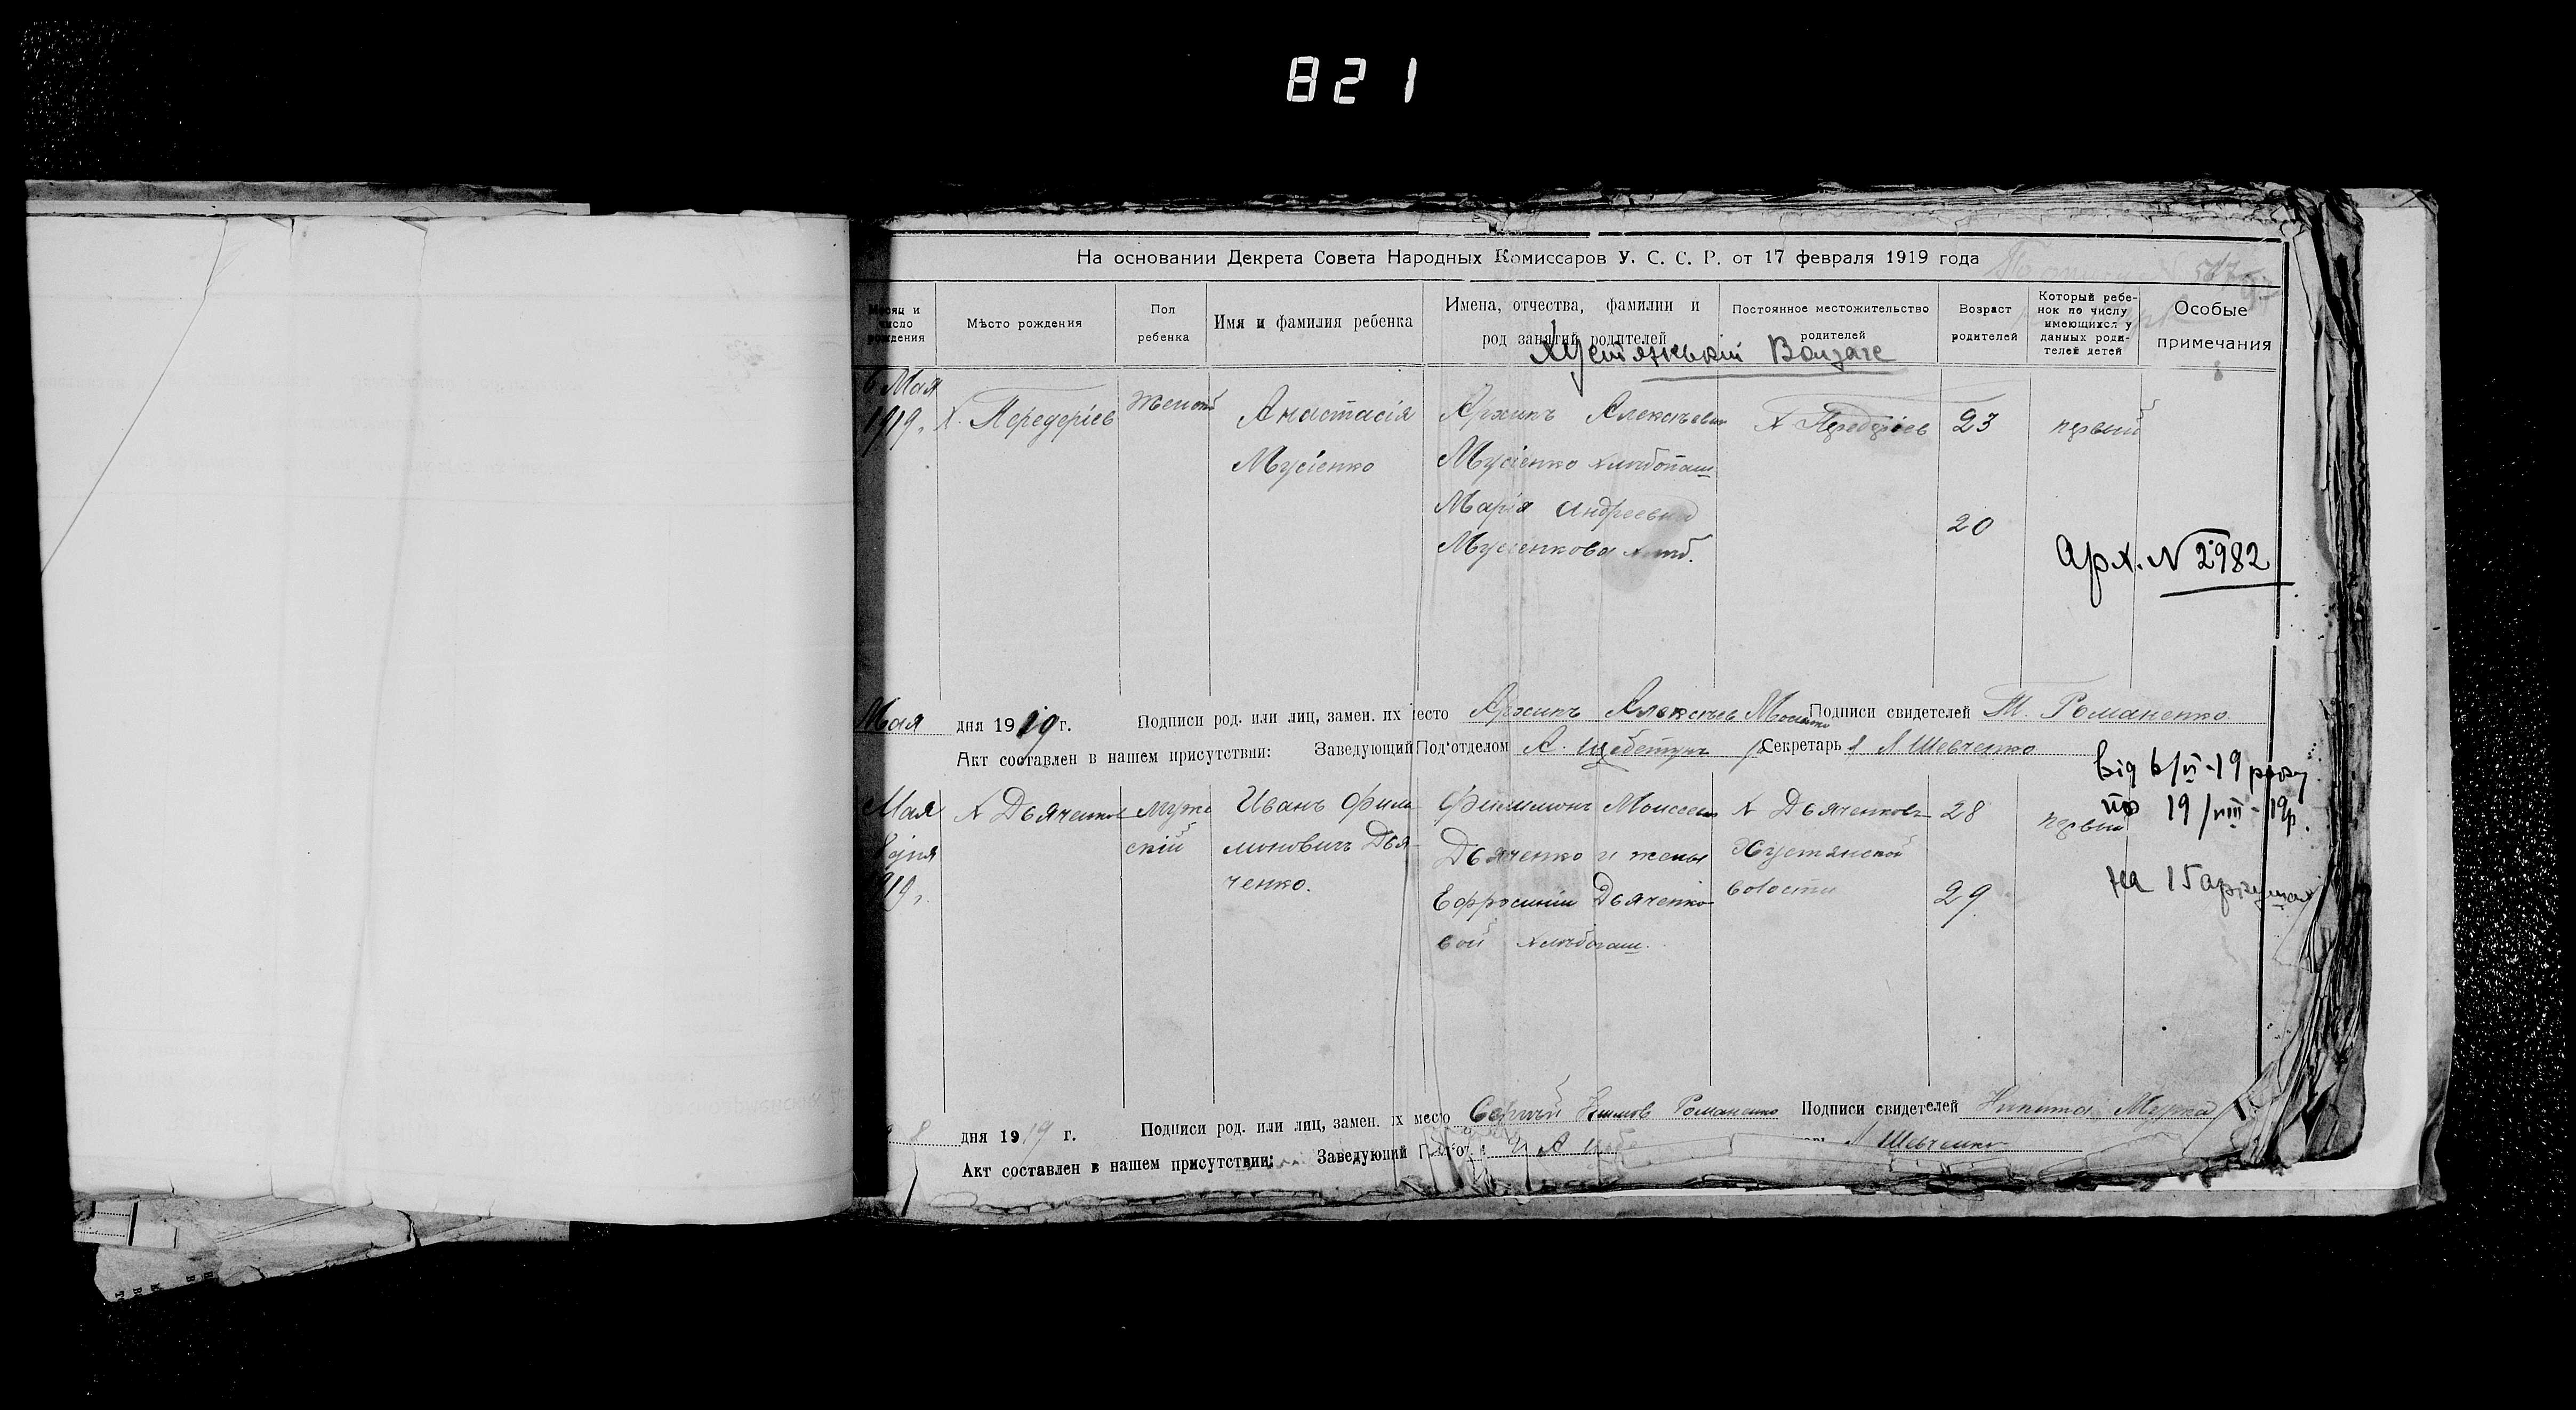 821
На основании Декрета Совета Народных Комиссаров У. С. С. Р. от 17 февраля 1919 года
Месяц и число рождения
Мѣсто рождения
Пол ребенка
Имя и фамилия ребенка
Имена, отчества, фамилии и род занятий родителей
Постоянное местожительство родителей
Возраст родителей
Который ребенок по числу имеющихся у данных родителей детей
Особые примечания
6 Мая
1919,
х. Передеріев
Женскій
Анастасія
Мусіенко
Архипъ Алексѣевич
Мусіенко хлѣбопаш
Марія Андреевна
Мусіенкова хлѣб.
х Передеріев
23
20
первый
Арх. № 2982
Мая дня 1919 г. Подписи род. или лиц, замен. их место Архипъ Алексѣев Подписи свидетелей Т. Романенко
Акт составлен в нашем присутствии: Заведующий Под'отделом А. Щебетунъ Секретарь Л Шевченко
від 6/VI-19 року
по 19/VIII-19р.
на 15 аркушах
Мая
8 дня
919,
х Дьяченков
мужескій
Иванъ Филимоновичъ Дьяченко.
Филимонъ Моисеев
Дьяченко и жены
Ефросиніи Дьяченко-
вой хлѣбопаш.
х Дьяченков
Хустянской
волости
28
29
первый
8 дня 1919 г. Подписи род. или лиц, замен. их место Сергѣй Романенко Подписи свидетелей Никита
Акт составлен в нашем присутствии: Заведующий А Л Шевченко